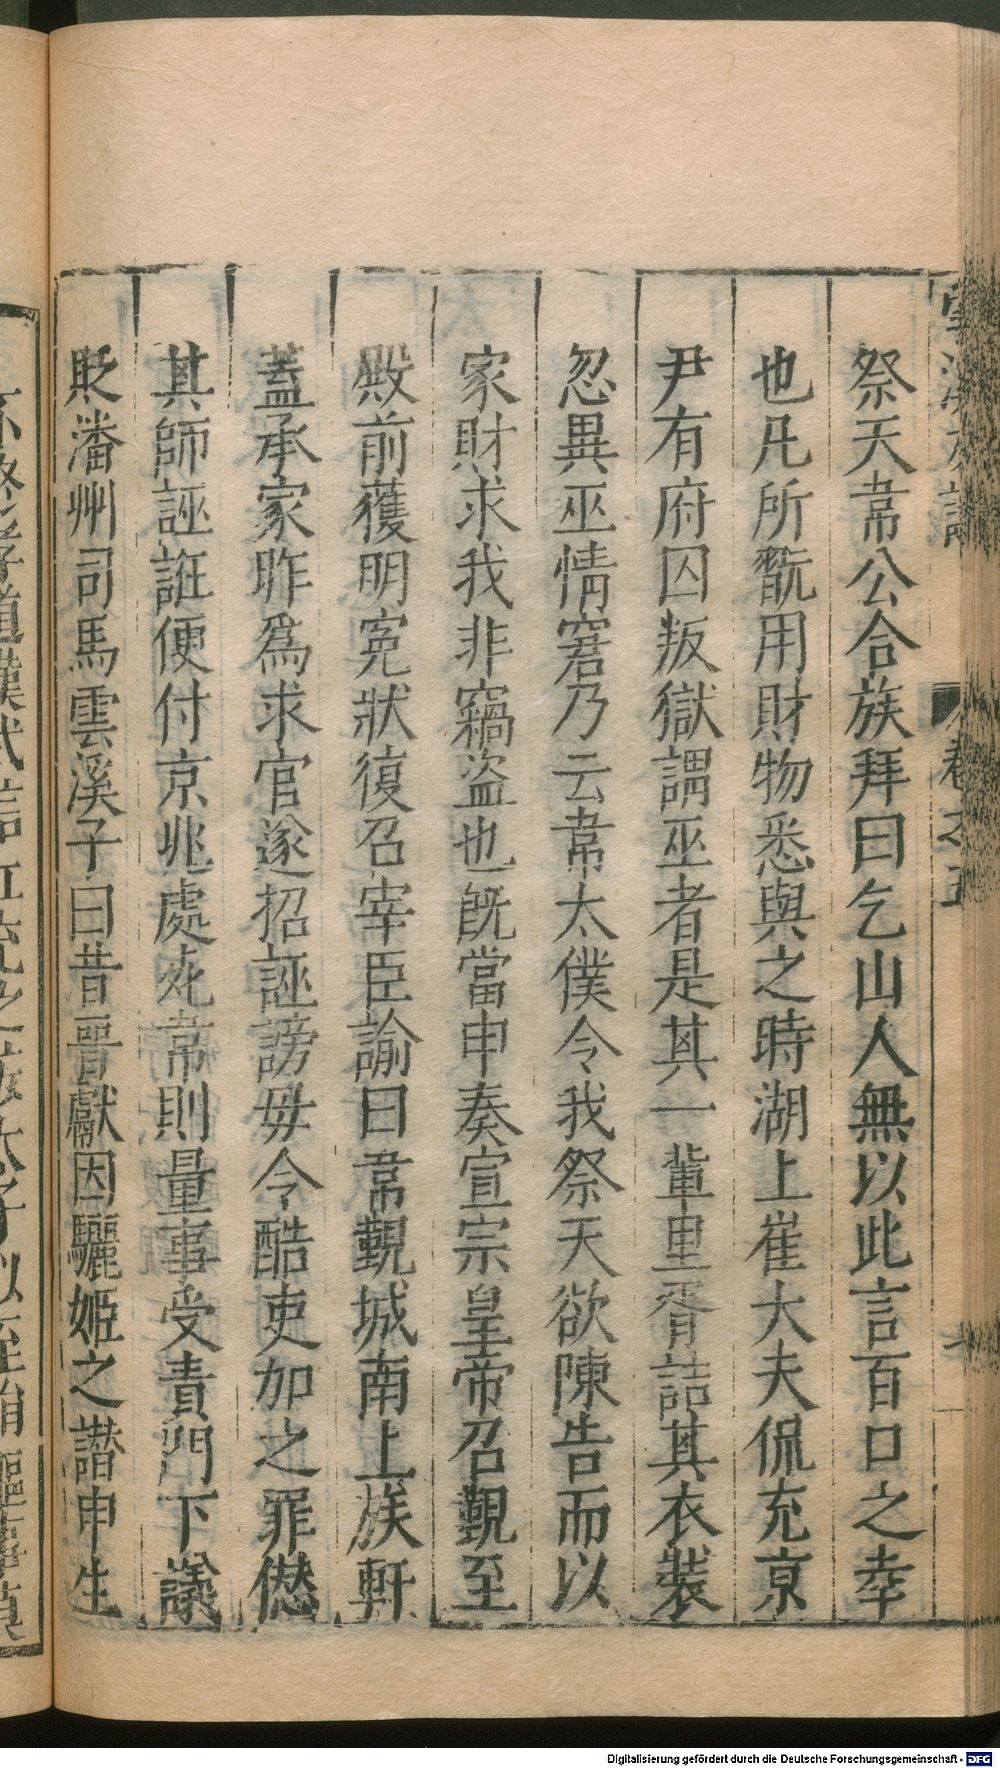 祭天韋公合族拜曰乞山人無以此言百口之幸
也凡所翫用財物悉與之時湖上崔大夫侃充京
尹有府囚叛獄謂巫者是其一輩里胥詰其衣裝
忽異巫情窘乃云韋太僕令我祭天欲陳告而以
家財求我非竊盜也既當申奏宣宗皇帝召覿至
殿前獲明冤狀復召宰臣諭曰韋覿城南上族軒
蓋承家昨為求官遂招誣謗毋令酷吏加之罪僁
其師誣誑便付京兆處死韋則量事受責門下議
貶潘州司馬雲溪子曰昔晋獻因驪姬之譖申生
卷之五
Digitalisierung gefördert durch die Deutsche Forschungsgemeinschaft - DFG